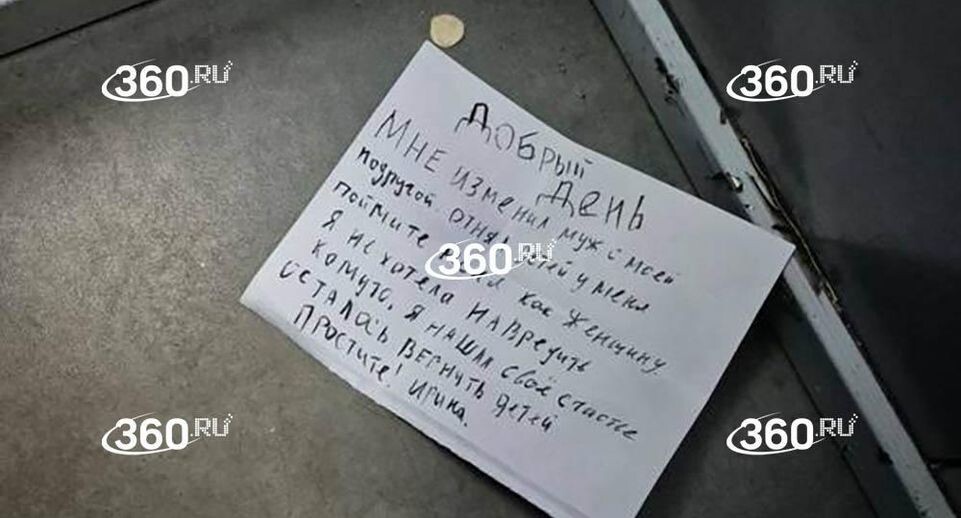 360.RU
360.RU
ДОБРЫЙ
ДЕНЬ
МНЕ ИЗМЕНИЛ МУЖ С МОЕЙ
ПОДРУГОЙ ОТНЯЛ ДЕТЕЙ У МЕНЯ
ПОЙМИТЕ МЕНЯ КАК ЖЕНЩИНУ
360.RU
Я НЕ ХОТЕЛА НАВРЕДИТЬ
КОМУТО. Я НАШЛА СВОЁ СЧАСТЬЕ
ОСТАЛАСЬ ВЕРНУТЬ ДЕТЕЙ
ПРОСТИТЕ! ИРИНА.
360.RU
360.RU